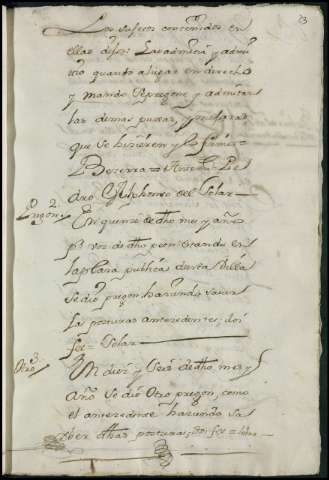 23
Los sujetos contenidos en
ellas dijo: Las admitia y admi
tio quanto a lugar en derecho
y mando se pregone y admitan
las demas puxas, y mejoras
que se hizieren y lo firmo=
Bezerra= Ante mi Pe
dro Alphonso del Solar
2.
Pregon En quinze de dho mes y año
por voz de dho peon estando en
la plaza publica de esta Villa
se dio pregon haziendo saver
las posturas antecedentes, doi
fee= Solar
3.
Otro En diez y seis de dho mes y
año se dio otro pregon, como
el antecedente haziendo sa
ber dhas posturas; doi fee= Solar